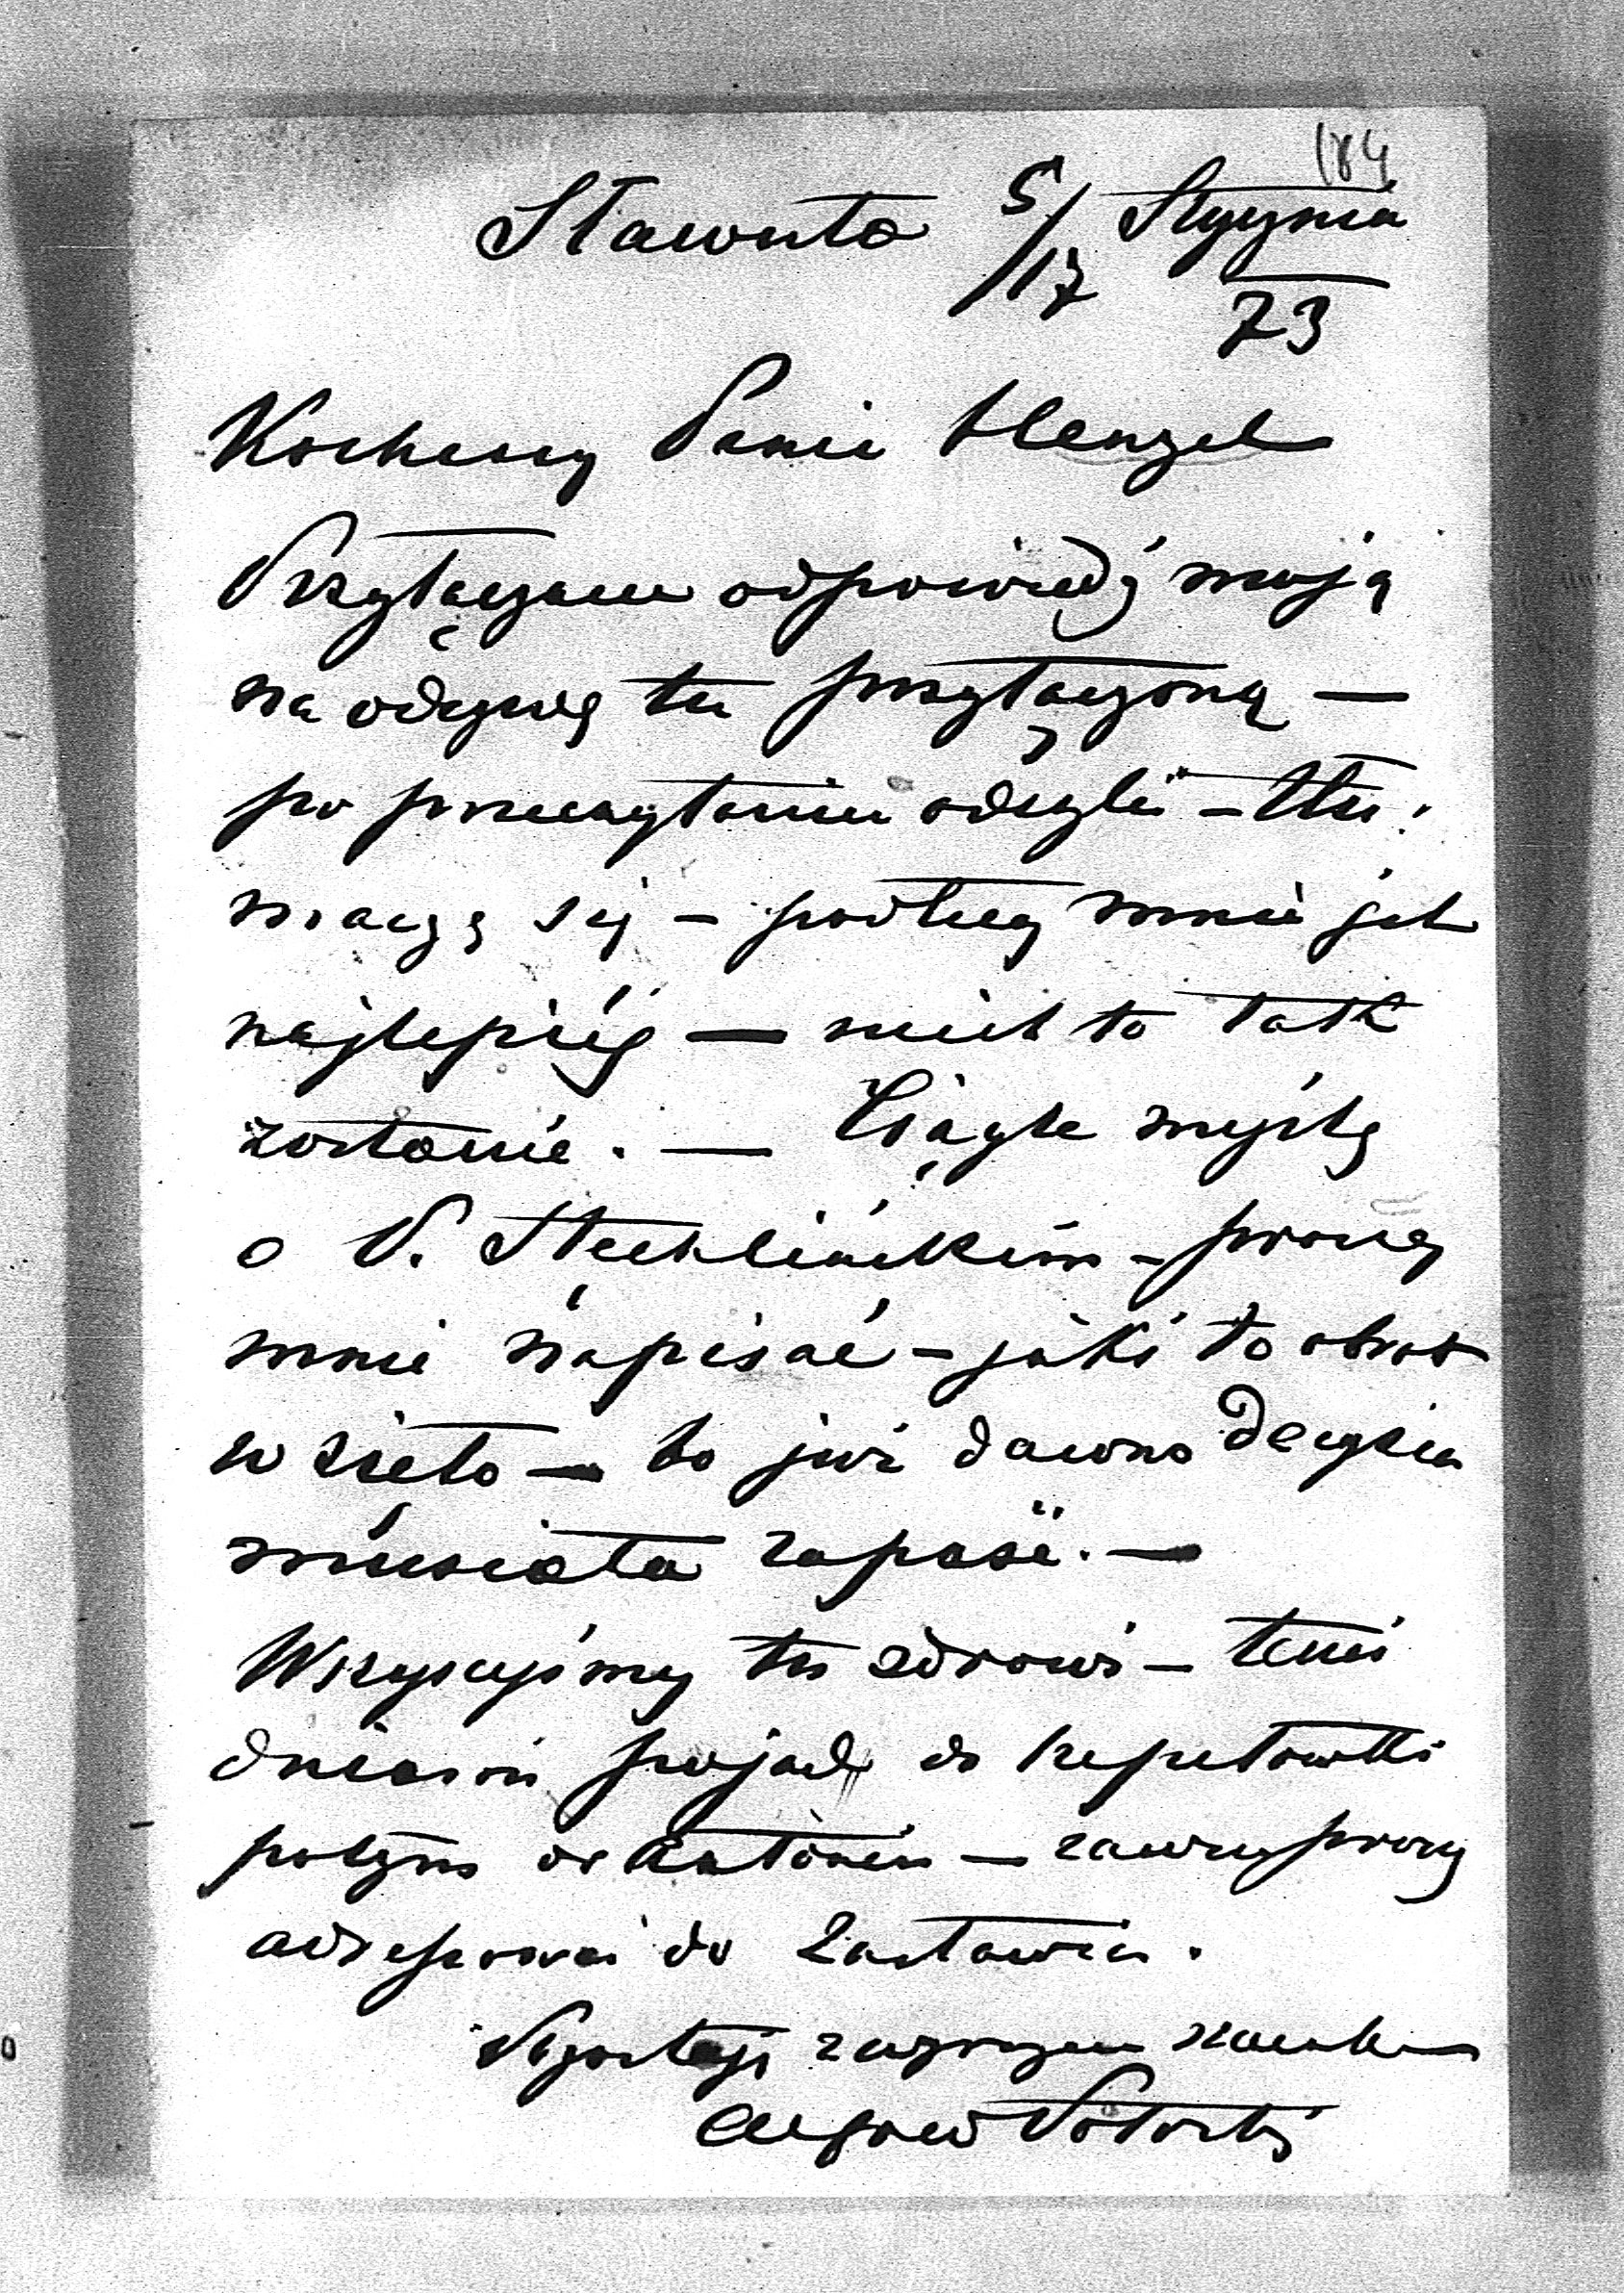 184
Sławuta 5/17 Stycznia
73
Kochany Panie Henzel
Przyłączam odpowiedź moją
na odezwę tu przyłączoną —
po przeczytaniu odeszli — tłu:
maczę się — podług mnie jak
najlepiéj — niech to tak
zostanie. — Ciągle myślę
o P. Stechlińskim — proszę
mnie napisać — jaki to obrot
wzięło — bo już dawno decyzia
musiała zapaść. —
Wszyscyśmy tu zdrowi — temi
dniami pojadę do Szepetówki
potym do Antonin — zawsze proszę
adresować do Zasławia.
zawsze
Alfred Potocki